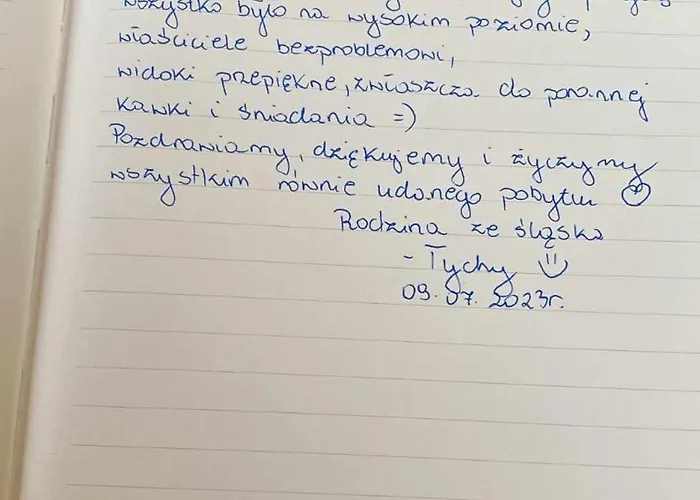 wszystko było na wysokim poziomie,
właściciele bezproblemowi,
widoki przepiękne, zwłaszcza do porannej
kawki i śniadania =)
Pozdrawiamy, dziękujemy i życzymy
wszystkim równie udanego pobytu
Rodzina ze śląska
- Tychy
09.07.2023r.